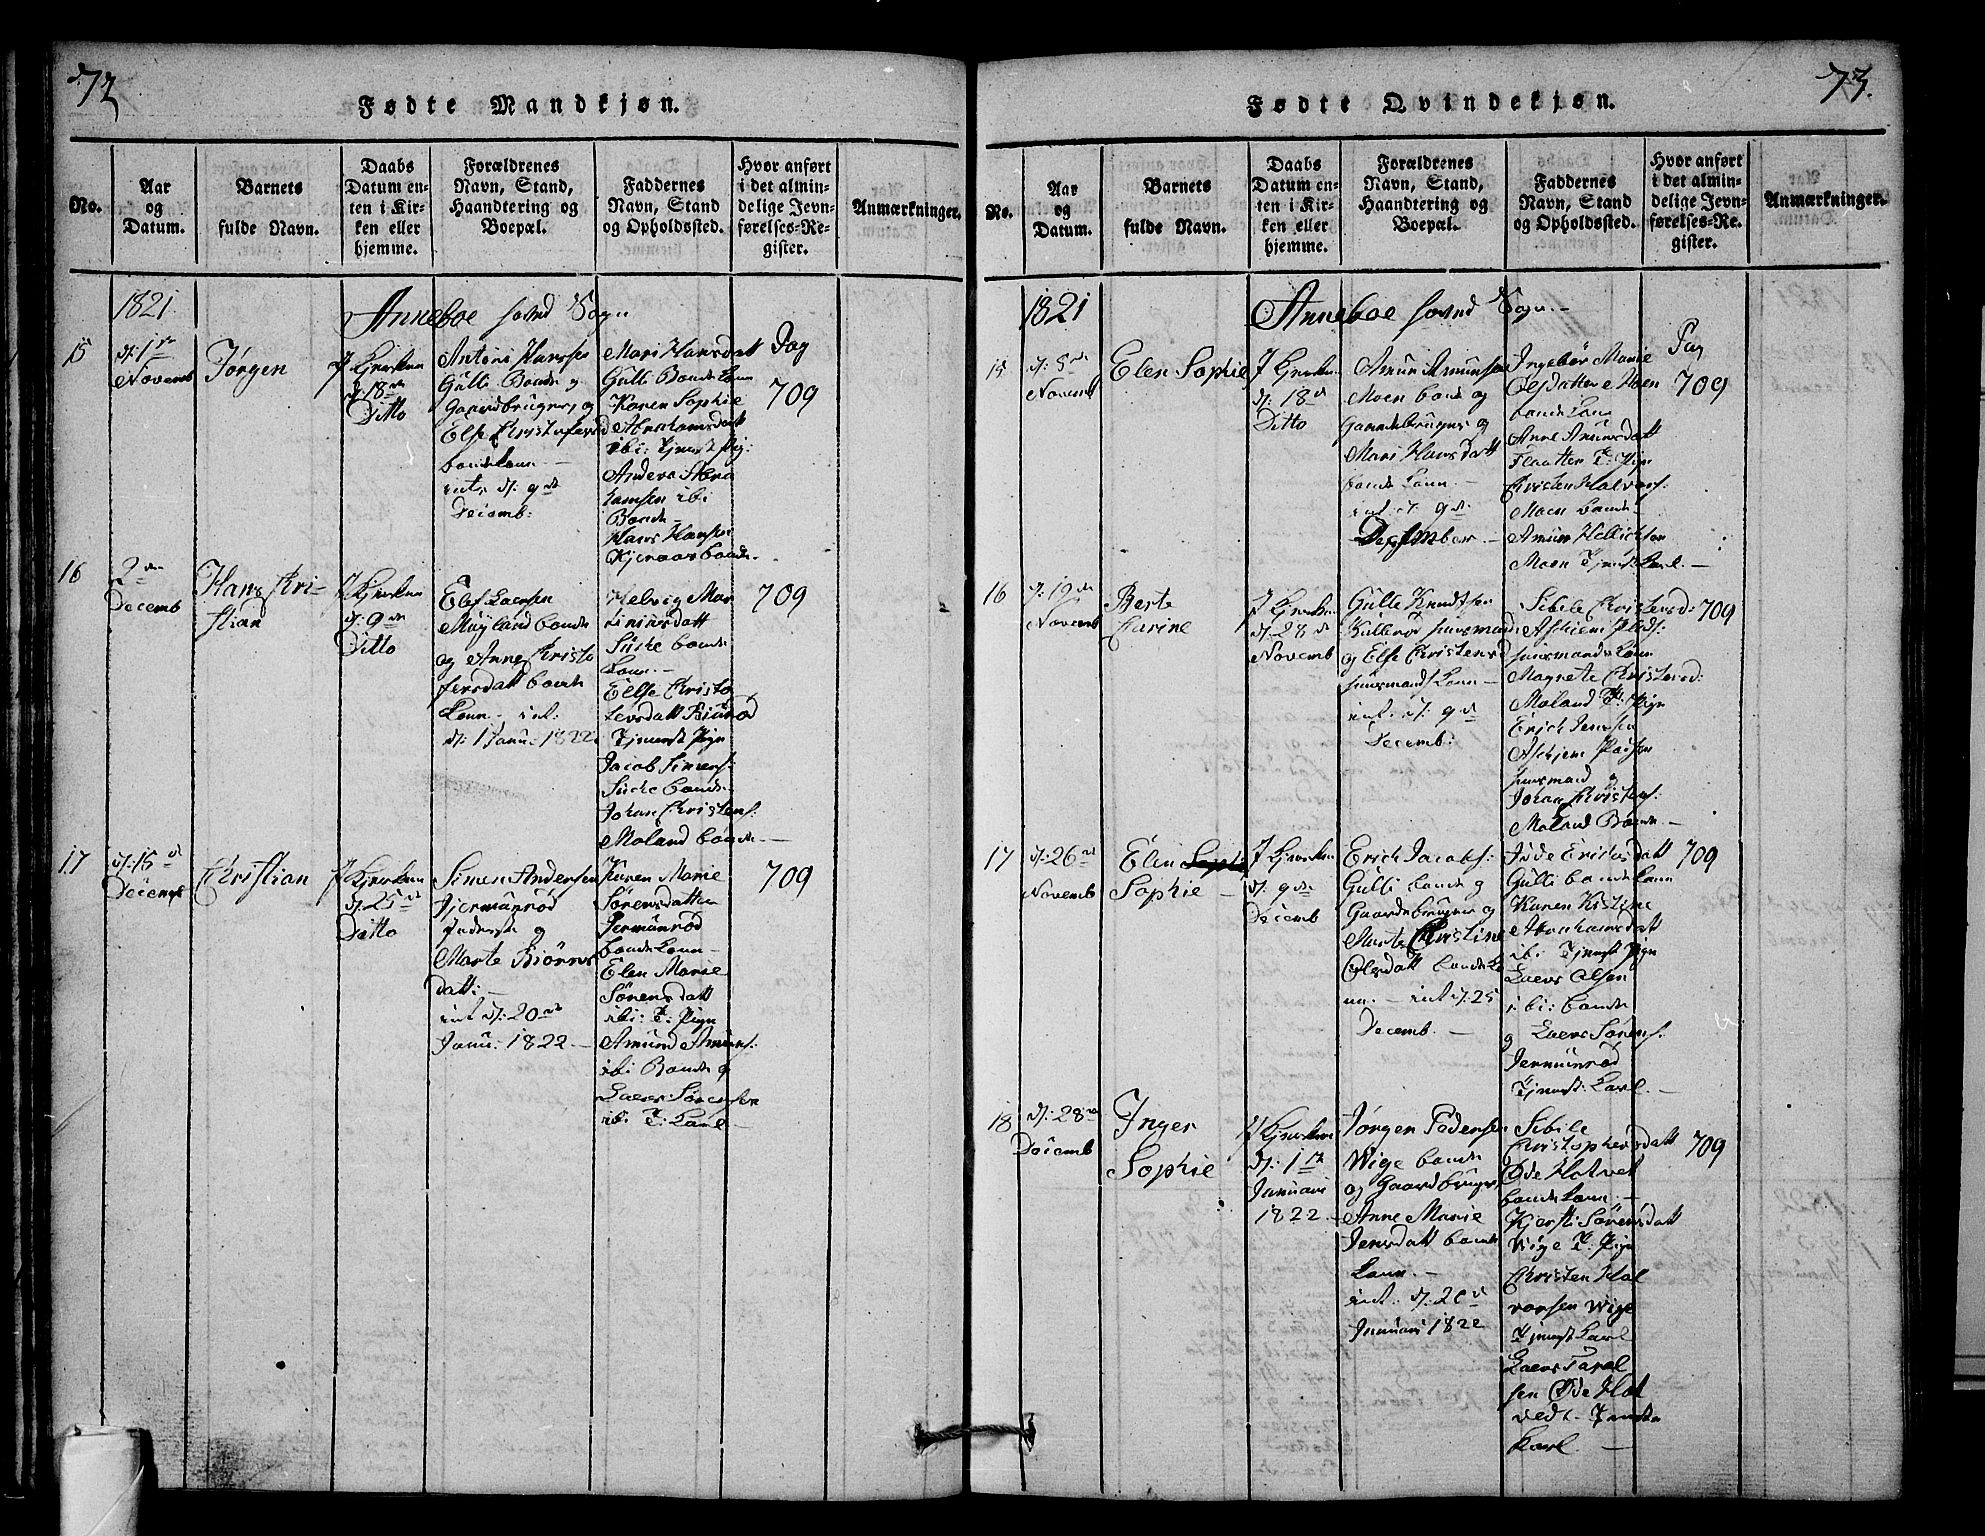 72
Fødte Mandkjøn.
No.
Aar
og
Datum.
Barnets
fulde Navn.
Daabs
Datum en-
ten i Kir-
ken eller
hjemme.
Forældrenes
Navn, Stand,
Haandtering og
Boepæl.
Faddernes
Navn, Stand
og Opholdssted.
Hvor anført
i det almin-
delige Jevn-
førelses-Re-
gister.
Anmærkninger.
1821
Anneboe Sogn
15
Novemb
Jørgen
J Kjerken
d: 18de
Ditto
Antoni Hansen
Gulli Bonde og
Gaardbruger og
Else
bondekone
int. d: 9de
Decemb:
Mari Hansdatt
Gulli Bonde Kone
Karen Sophie
Abrahamsdatt
ibi: Tjenest Pig:
Anders Abra
hamsen ibi
Bonde
Hans Hansen
bonde
Pag
709
16
2de
Decemb
Hans Kri-
stian
J Kjerken
d: 9de
Ditto
Elef Laersen
Møyland bonde
og Anne Christo
fersdatt bonde
Kone - int:
d: 1 Janu: 1822
Helvig Mar
tininsdatt
bonde
Kone
Ellse Christo
fersdatt
Tjenest Pige
Jacob Simens:
bonde
Johan Christens:
Moland bonde
709
17
d: 15de
Decemb
Christian
J Kjerken
d: 25de
Ditto
Simen Andersen
Jjermünrød
og
Marte Biörns
datt:
int d: 20de
Janu: 1822
Karen Marie
Sørensdatter
Jermünrød
bonde Kone
Elen Marie
Sörensdatt
ibi: T: Pige
Amund Amuns:
ibi Bonde og
Laers Sørensen
ibi T: Karl
709
73.
Fødte Qvindekjøn.
No.
Aar
og
Datum.
Barnets
fulde Navn.
Daabs
Datum en-
ten i Kir-
ken eller
hjemme.
Forældrenes
Navn, Stand,
Haandtering og
Boepæl.
Faddernes
Navn, Stand
og Opholdssted.
Hvor anført
i det almin-
delige Jevn-
førelses-Re-
gister.
Anmærkninger.
1821
Anneboe Sogn
15
d: 5de
Novemb
Elen Sophie
J Kjerken
d: 18de
Ditto
Amun Amunsen
Moen bonde og
Gaardbruger og
Mari Hansdatt
bonde Kone
int. d: 9de
December
Ingebør Marie
Olesdatter Moen
bonde Kone
Anne Amunsdatt
Flaatten T: Pige
Christen Halvors:
Moen bonde
Amun
Moen Tjenest Karl
Pag
709
16
d: 19de
Novemb
Berte
Carine
J Kjerken
d: 28de
Novemb
Gulle Knudtsen
Kullerød husmand
og Else Christensd
husmands Kone
int. d: 9de
Decemb:
Sibile Christensd:
Aschiem
husmands Kone
Magrete Christensd:
Moland T: Pige
Erich Jensen
Aschjem
husmand og
Johan Christens:
Moland Bonde
709
17
d: 26de
Novemb
Elen
Sophie
J Kjerken
d. 9de
Decemb
Erich Jacobs:
Gulli bonde og
Gaardbruger og
Marte Christine
Olesdatt bonde Ko
ne. - int d: 25
Decemb.
Erichsdatt
Gulli bonde Kone
Karen Kistine
Abrahamsdatt
ibi: Tjenest Pige
Laers Olsen
ibi: bonde
og Laers Sørens:
Jermünrød
Tjenest: Karl
709
18
d: 28de
Decemb
Inger
Sophie
J Kjerken
d: 1ste
Januari
1822
Jørgen Pedersen
Wige bonde
og Gaardbruger
Anne Marie
Jensdatt bonde
Kone
int. d: 20de
Januari 1822
Sibile
Christophersdatt
Øde Hotvet
bonde Kone
Kjersti Sörensdatt
Wige T: Pige
Christen Hal
vorsen Wige
Tjenest Karl
Laers
sen Øde Hot
vedt - Tjeneste
Karl
709